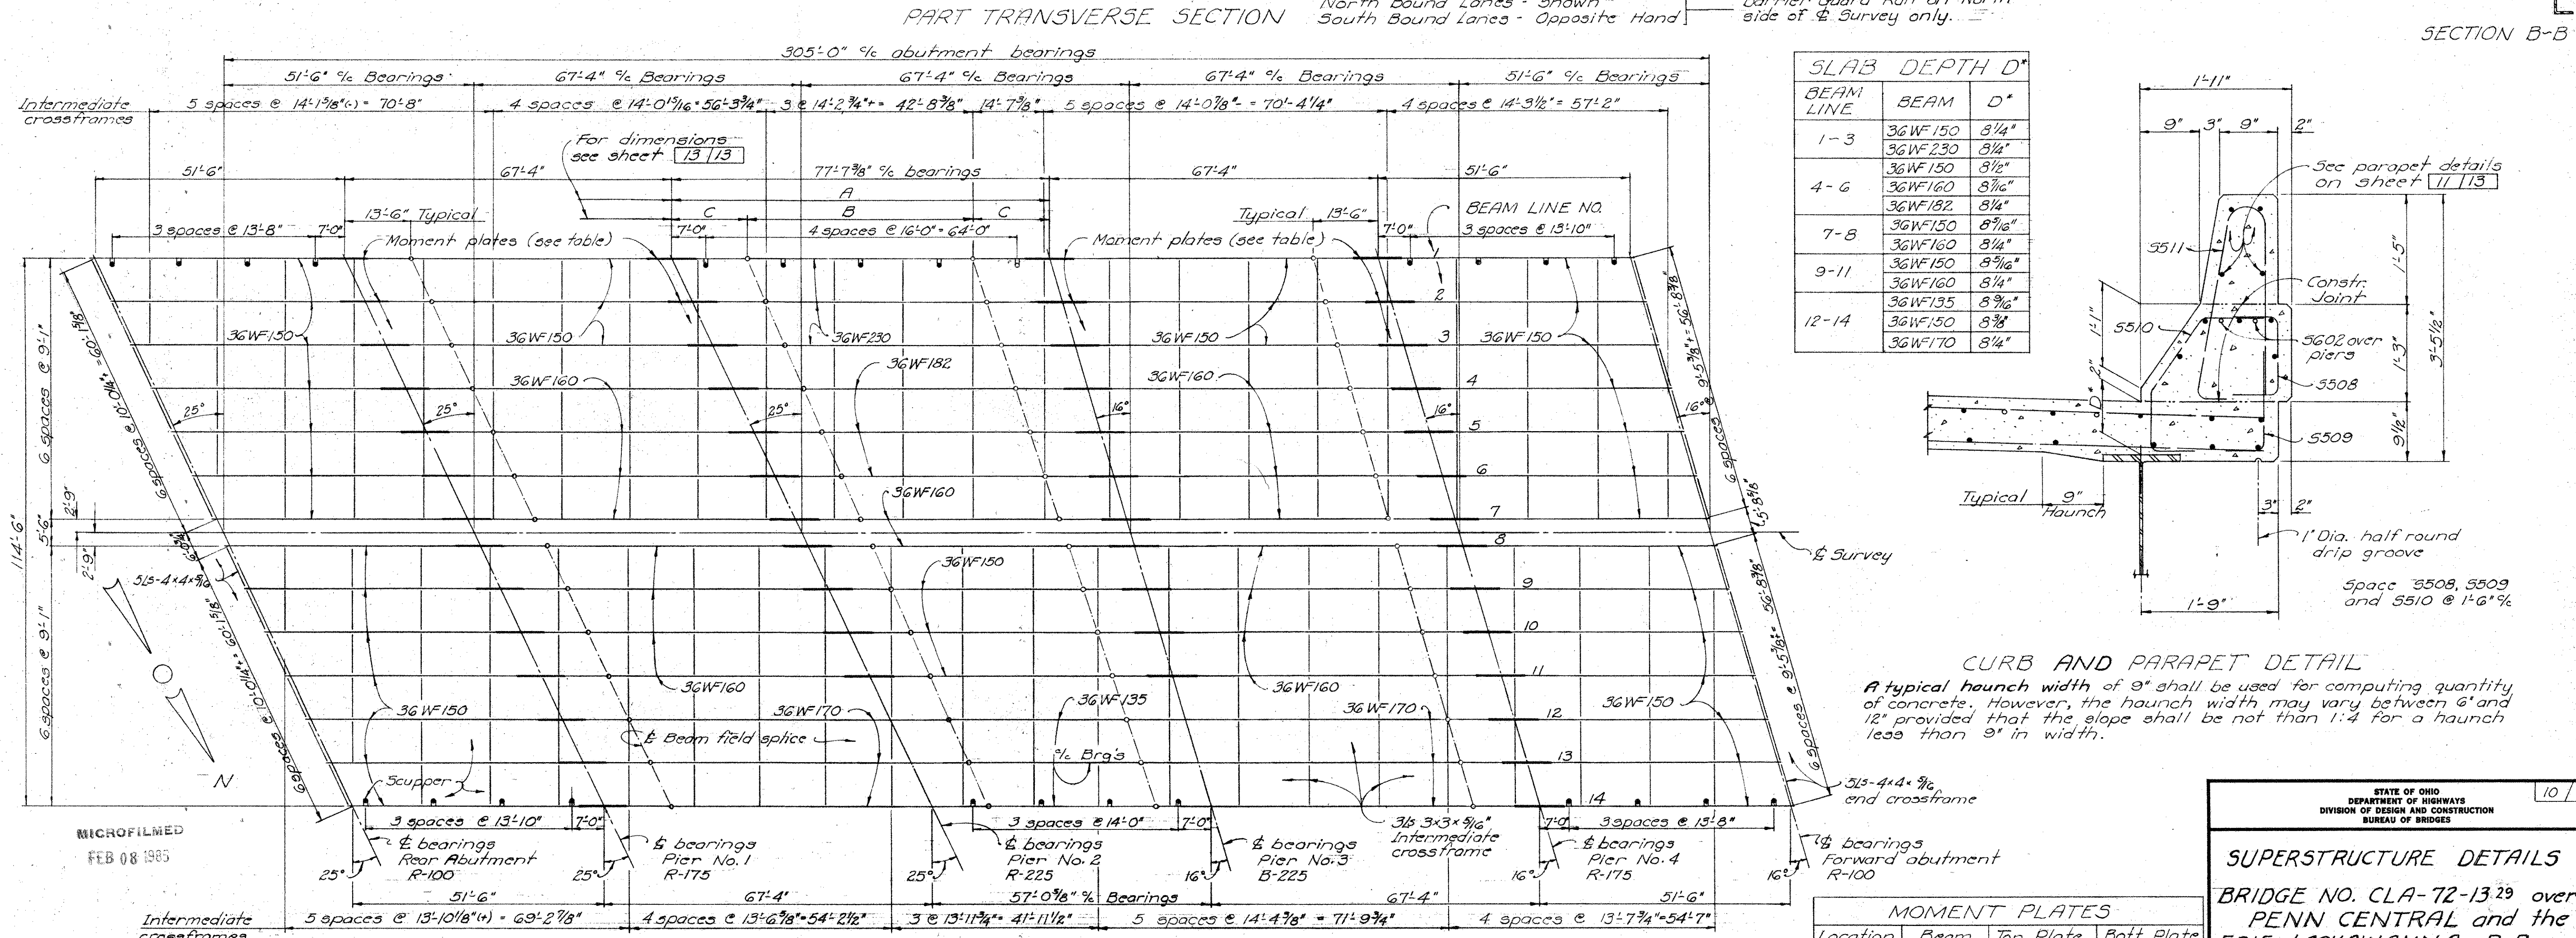 PART TRANSVERSE SECTION
North Bound Lanes - Shown
South Bound Lanes - Opposite Hand
Barrier Guard Rail on North
side of ℄ Survey only.
SECTION B-B
305'-0" c/c abutment bearings
51'-6" c/c Bearings
67'-4" c/c Bearings
67'-4" c/c Bearings
67'-4" c/c Bearings
51'-6" c/c Bearings
Intermediate
crossframes
5 spaces @ 14'-1 5/8"(-) = 70'-8"
4 spaces @ 14'-0 15/16" = 56'-3 3/4"
3 @ 14'-2 3/4"+ = 42'-8 3/8"
14'-7 3/8"
5 spaces @ 14'-0 7/8"- = 70'-4 1/4"
4 spaces @ 14'-3 1/2" = 57'-2"
For dimensions
see sheet 13/13
51'-6"
67'-4"
77'-7 3/8" c/c bearings
67'-4"
51'-6"
A
C
B
C
13'-6" Typical
Typical 13'-6"
BEAM LINE NO.
3 spaces @ 13'-8"
7'-0"
7'-0"
4 spaces @ 16'-0" = 64'-0"
7'-0"
3 spaces @ 13'-10"
Moment plates (see table)
Moment plates (see table)
1
2
3
4
5
6
7
8
9
10
11
12
13
14
36WF150
36WF150
36WF230
36WF150
36WF150
36WF160
36WF182
36WF160
25°
25°
25°
16°
16°
16°
36WF160
114'-6"
6 spaces @ 9'-1"
5'-6"
6 spaces @ 9'-1"
2'-9"
2'-9"
6 spaces @ 10'-0 1/4"+ = 60'-1 5/8"
6'-0 3/4"
6 spaces @ 10'-0 1/4"+ = 60'-1 5/8"
5Ls-4×4×5/16
6 spaces @ 9'-5 3/8"+ = 56'-8 3/8"
5'-8 5/8"
6 spaces @ 9'-5 3/8"+ = 56'-8 3/8"
℄ Survey
36WF150
36WF160
36WF160
36WF150
36WF170
36WF135
36WF170
36WF150
℄ Beam field splice
c/c Brg's
Scupper
N
5Ls-4×4×5/16
end crossframe
3 spaces @ 13'-10"
7'-0"
3 spaces @ 14'-0"
7'-0"
3Ls 3×3×5/16"
Intermediate
crossframe
7'-0"
3 spaces @ 13'-8"
℄ bearings
Rear Abutment
R-100
℄ bearings
Pier No. 1
R-175
℄ bearings
Pier No. 2
R-225
℄ bearings
Pier No. 3
B-225
℄ bearings
Pier No. 4
R-175
℄ bearings
Forward abutment
R-100
25°
25°
25°
16°
16°
16°
51'-6"
67'-4"
57'-0 5/8" c/c Bearings
67'-4"
51'-6"
Intermediate
crossframes
5 spaces @ 13'-10 1/8"(+) = 69'-2 7/8"
4 spaces @ 13'-6 5/8" = 54'-2 1/2"
3 @ 13'-11 3/4" = 41'-11 1/2"
5 spaces @ 14'-4 3/8" = 71'-9 3/4"
4 spaces @ 13'-7 3/4" = 54'-7"
MICROFILMED
FEB 08 1985
SLAB DEPTH D*
BEAM LINE BEAM D*
1-3 36WF150 8 1/4"
36WF230 8 1/4"
4-6 36WF150 8 1/2"
36WF160 8 7/16"
36WF182 8 1/4"
7-8 36WF150 8 5/16"
36WF160 8 1/4"
9-11 36WF150 8 5/16"
36WF160 8 1/4"
12-14 36WF135 8 9/16"
36WF150 8 3/8"
36WF170 8 1/4"
1'-11"
9" 3" 9" 2"
See parapet details
on sheet 11/13
S511
Constr.
Joint
S510
S602 over
piers
S508
S509
1'-1"
2"
D*
1'-5"
1'-3"
9 1/2"
3'-5 1/2"
Typical 9"
Haunch
3" 2"
1" Dia. half round
drip groove
1'-9"
Space S508, S509
and S510 @ 1'-6" c/c
CURB AND PARAPET DETAIL
A typical haunch width of 9" shall be used for computing quantity
of concrete. However, the haunch width may vary between 6" and
12" provided that the slope shall be not than 1:4 for a haunch
less than 9" in width.
MOMENT PLATES
Location Beam Top Plate Bott. Plate
STATE OF OHIO
DEPARTMENT OF HIGHWAYS
DIVISION OF DESIGN AND CONSTRUCTION
BUREAU OF BRIDGES
10/
SUPERSTRUCTURE DETAILS
BRIDGE NO. CLA-72-13.29 over
PENN CENTRAL and the